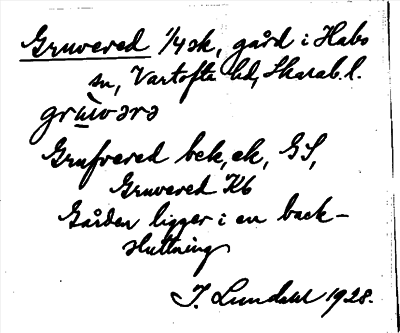 Gruvered 1/4 sk, gård i Habo
sn, Vartofta hd, Skarab. l.
grùvərə
Grufvered bek, ek, GS,
Gruvered K6
Gården ligger i en back-
sluttning
I. Lundahl 1928.